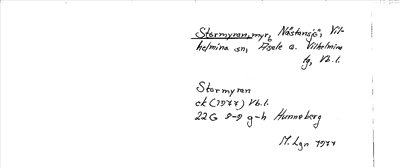 Stormyran, myr, Nästansjö, Vil-
helmina sn, Åsele o. Vilhelmina
tg, Vb.l.
Stormyran
ek (1977) Vb.l.
22G 8-9 g-h Hunneberg
M. Lgn 1977